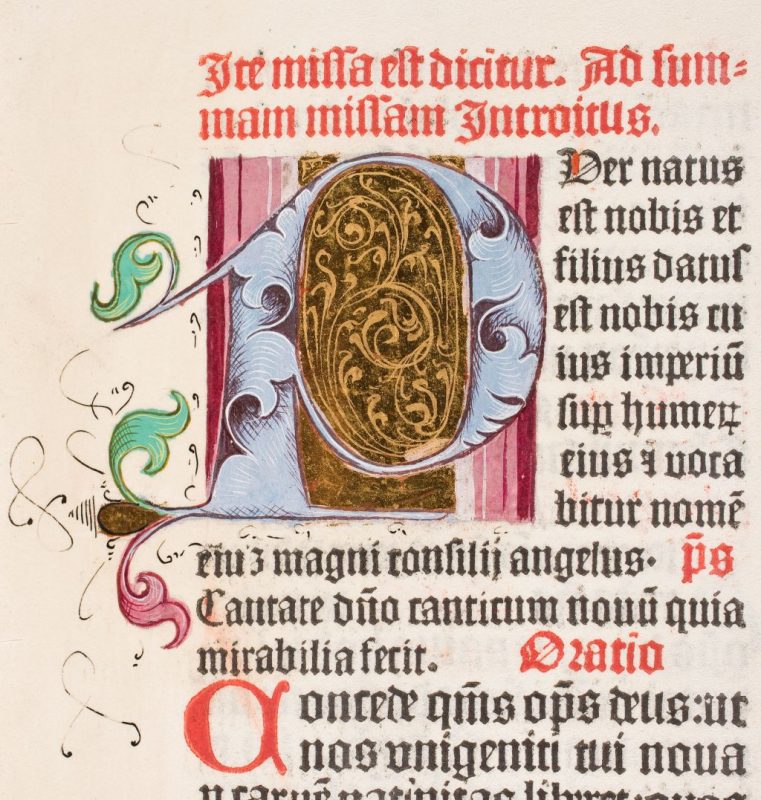 Ite missa est dicitur. Ad sum-
mam missam Introitus.
PUer natus
est nobis et
filius datus
est nobis cu
ius imperiū
sup̲ humeꝝ
eius ⁊ voca
bitur nomē
eiuʒ magni consilij angelus. p̄s
Cantate dn̄o canticum nouū quia
mirabilia fecit. Oratio
Concede qm̄s op̄s deus: ut
nos vnigeniti tui noua
natiuitas liberet